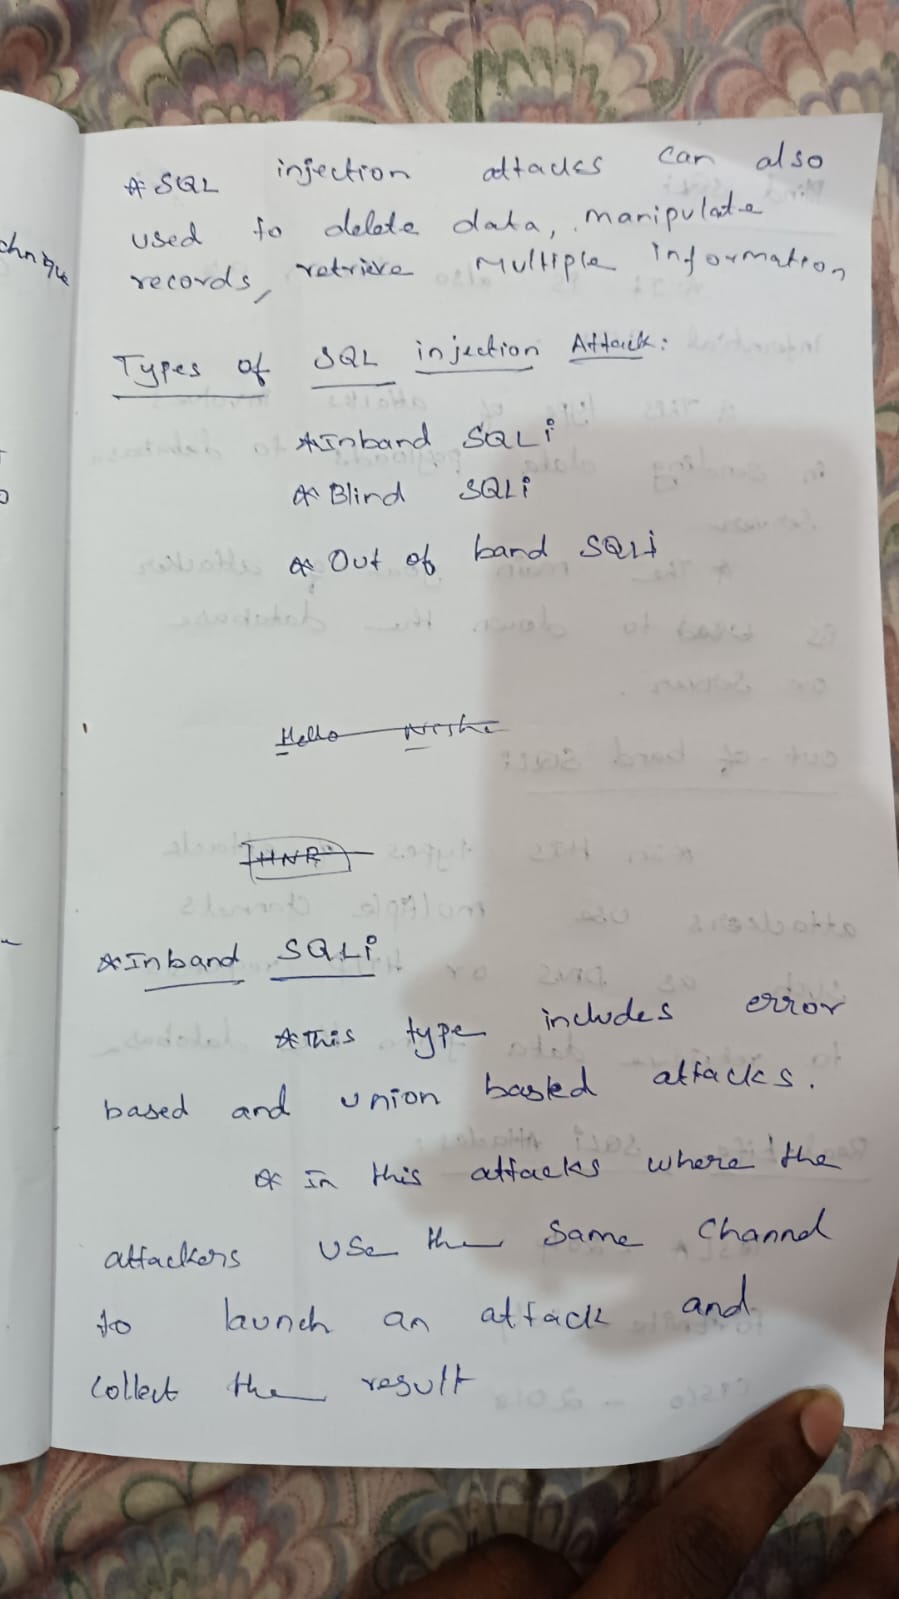 chnique
* SQL injection attacks can also
used to delete data, manipulate
records, retrieve multiple information
Types of SQL injection Attack:
* Inband SQLi
* Blind SQLi
* Out of band SQLi
Hello
IHNR
* Inband SQLi
* This type includes error
based and union basked attacks.
* In this attacks where the
attackers use the same channel
to launch an attack and
collect the result